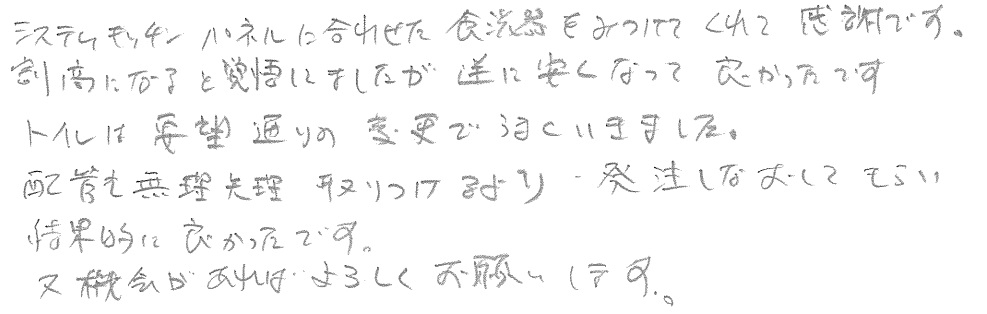 システムキッチン パネルに合わせた 食洗器をみつけてくれて 感謝です。
割高になると覚悟してましたが 逆に安くなって 良かったです
トイレは 要望通りの 変更で うまくいきました。
配管も無理矢理 取りつけるより 発注しなおしてもらい
結果的に 良かったです。
又機会があれば よろしく お願いします。